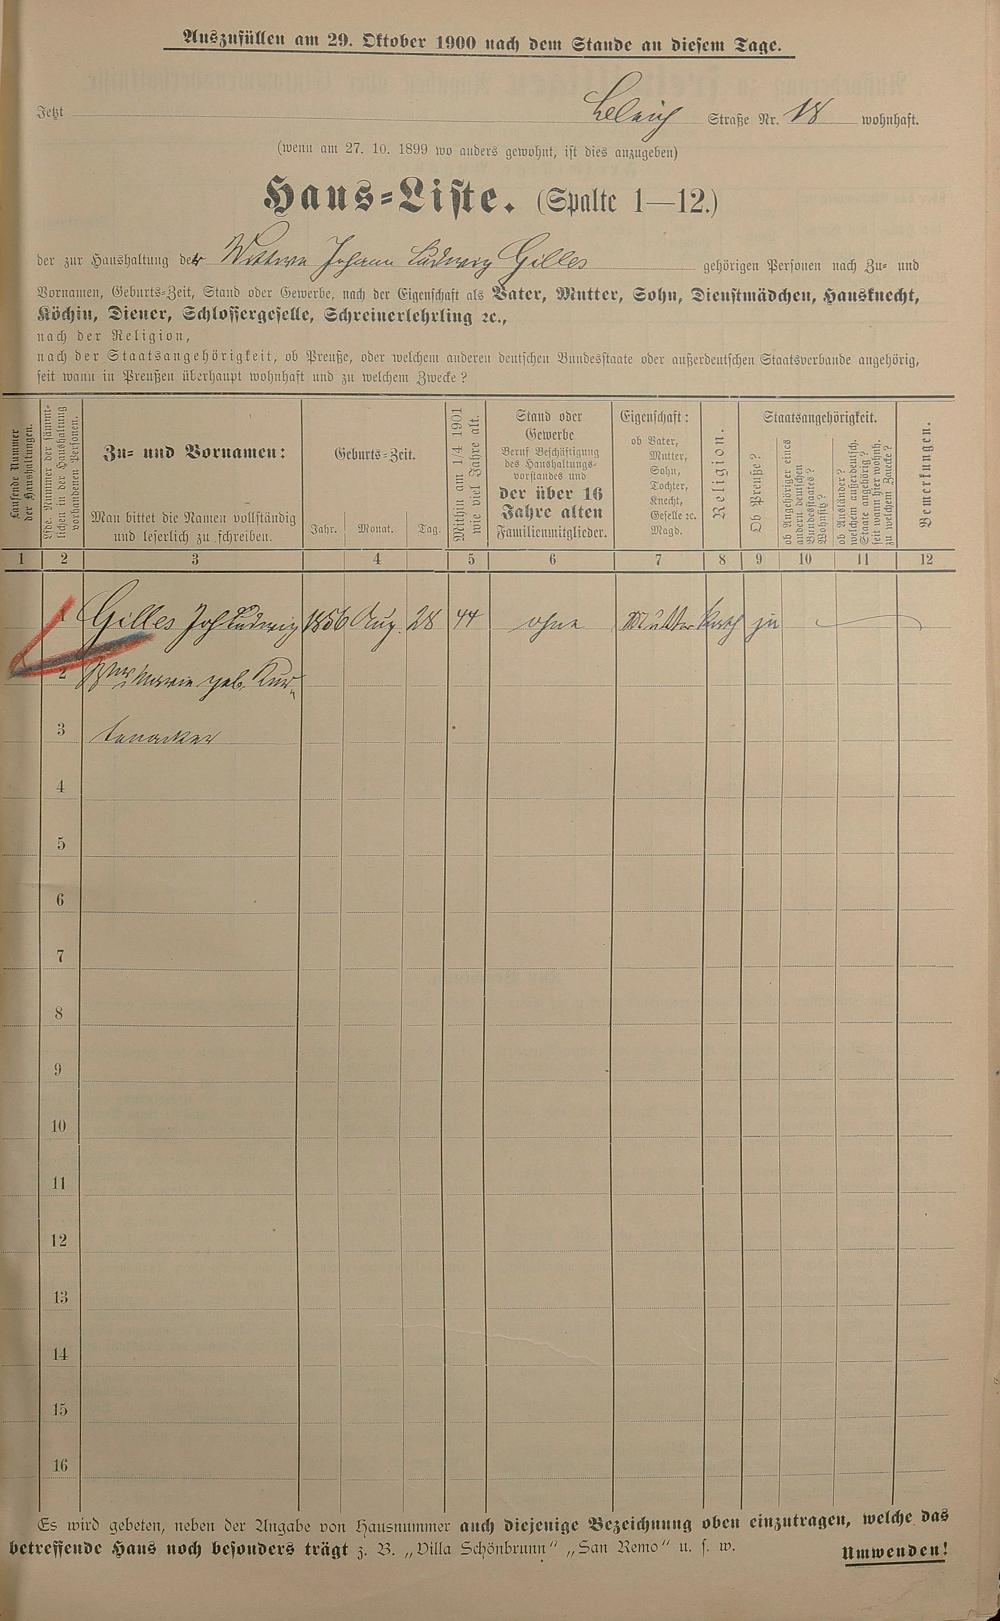 Auszufüllen am 29. Oktober 1900 nach dem Stande an diesem Tage.
Jetzt Straße Nr. 18 wohnhaft.
(wenn am 27. 10. 1899 wo anders gewohnt, ist dies anzugeben)
Haus-Liste. (Spalte 1—12.)
der zur Haushaltung der Wittwe Johann Ludwig Gilles gehörigen Personen nach Zu- und
Vornamen, Geburts-Zeit, Stand oder Gewerbe, nach der Eigenschaft als Vater, Mutter, Sohn, Dienstmädchen, Hausknecht,
Köchin, Diener, Schlossergeselle, Schreinerlehrling ꝛc.,
nach der Religion,
nach der Staatsangehörigkeit, ob Preuße, oder welchem anderen deutschen Bundesstaate oder außerdeutschen Staatsverbande angehörig,
seit wann in Preußen überhaupt wohnhaft und zu welchem Zwecke?
Laufende Nummer
der Haushaltungen.
Lfde. Nummer der sämmt-
lichen in der Haushaltung
vorhandenen Personen.
Zu- und Vornamen:
Man bittet die Namen vollständig
und leserlich zu schreiben.
Geburts-Zeit.
Jahr. Monat. Tag.
Mithin am 1/4 1901
wie viel Jahre alt.
Stand oder
Gewerbe
Beruf Beschäftigung
des Haushaltungs-
vorstandes und
der über 16
Jahre alten
Familienmitglieder.
Eigenschaft:
ob Vater,
Mutter,
Sohn,
Tochter,
Knecht,
Geselle ꝛc.
Magd.
Religion.
Staatsangehörigkeit.
Ob Preuße?
ob Angehöriger eines
andern deutschen
Bundesstaates?
Wohnsitz?
ob Ausländer?
welchem außerdeutsch.
Staate angehörig?
seit wann hier wohnh.
zu welchem Zwecke?
Bemerkungen.
1 2 3 4 5 6 7 8 9 10 11 12
1 Gilles Joh Ludwig 1856 Aug. 28 44 ohne Mutter kath ja
2 Wwe Marie geb. Kur-
3 tenacker
4
5
6
7
8
9
10
11
12
13
14
15
16
Es wird gebeten, neben der Angabe von Hausnummer auch diejenige Bezeichnung oben einzutragen, welche das
betreffende Haus noch besonders trägt z. B. „Villa Schönbrunn" „San Remo" u. s. w.
Umwenden!